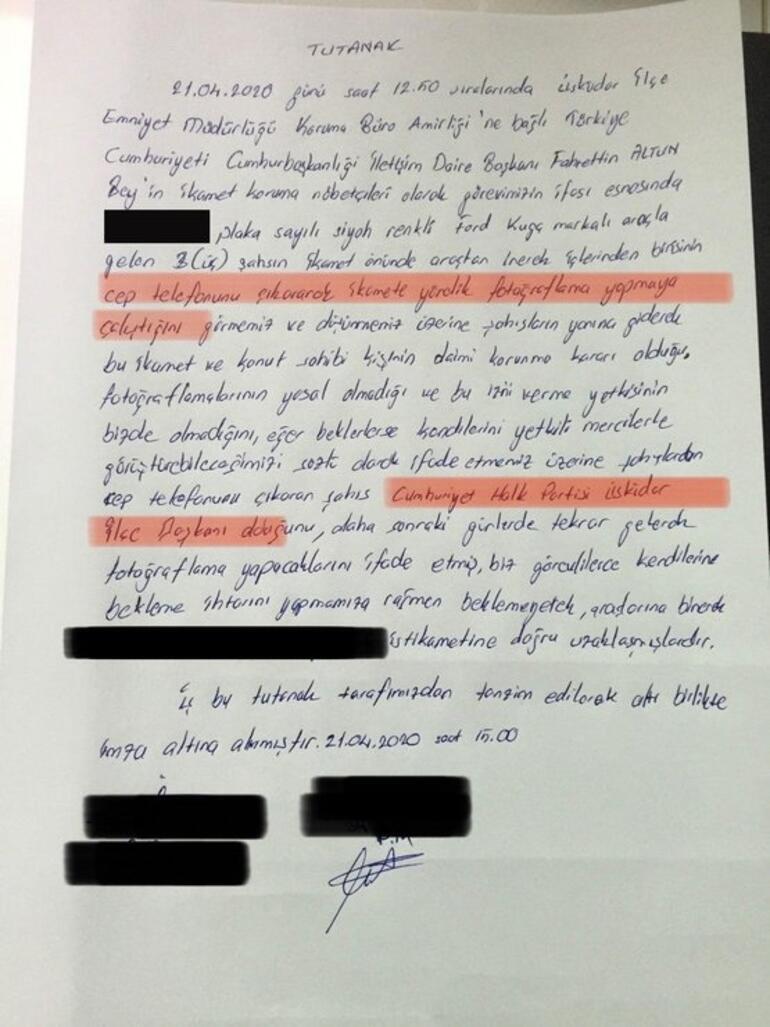 TUTANAK
21.04.2020 günü saat 12.50 sıralarında üsküdar ilçe
Emniyet Müdürlüğü Koruma Büro Amirliği'ne bağlı Türkiye
Cumhuriyeti Cumhurbaşkanlığı iletişim Daire Başkanı Fahrettin ALTUN
Bey'in ikamet koruma nöbetçileri olarak görevimizin ifası esnasında
plaka sayılı siyah renkli Ford Kuga markalı araçla
gelen 3(üç) şahsın ikamet önünde araçtan inerek içlerinden birisinin
cep telefonunu çıkararak ikamete yönelik fotoğraflama yapmaya
çalıştığını görmemiz ve düşünmemiz üzerine şahısların yanına giderek
bu ikamet ve konut sahibi kişinin daimi korunma kararı olduğu,
fotoğraflamalarının yasal olmadığı ve bu izni verme yetkisinin
bizde olmadığını, eğer beklerlerse kendilerini yetkili mercilerle
görüştürebileceğimizi sözlü olarak ifade etmemiz üzerine şahıslardan
cep telefonunu çıkaran şahıs Cumhuriyet Halk Partisi üsküdar
ilçe Başkanı olduğunu, daha sonraki günlerde tekrar gelerek
fotoğraflama yapacaklarını ifade etmiş, biz görevlilerce kendilerine
bekleme ihtarını yapmamıza rağmen beklemeyerek, araçlarına binerek
istikametine doğru uzaklaşmışlardır.
iş bu tutanak tarafımızdan tanzim edilerek altı birlikte
imza altına alınmıştır. 21.04.2020 saat 15.00